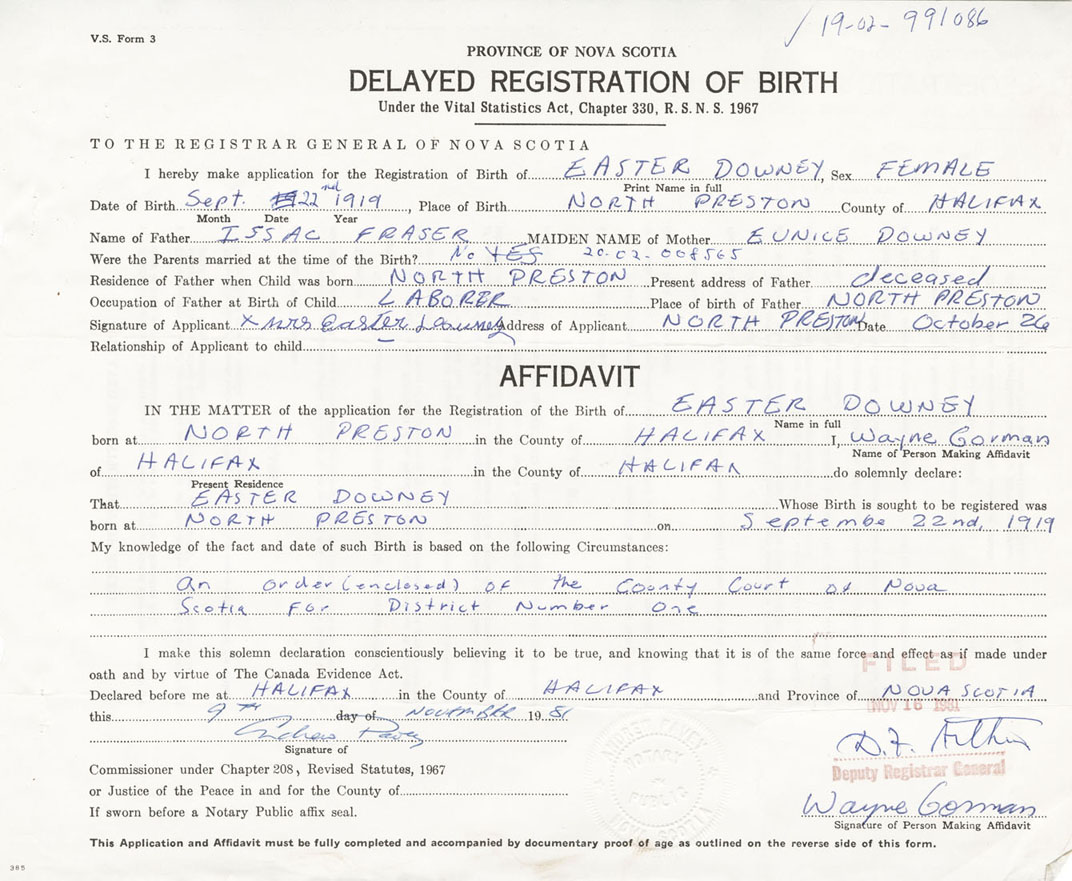 19-02-991086
V.S. Form 3
PROVINCE OF NOVA SCOTIA
DELAYED REGISTRATION OF BIRTH
Under the Vital Statistics Act, Chapter 330, R.S.N.S. 1967
TO THE REGISTRAR GENERAL OF NOVA SCOTIA
I hereby make application for the Registration of Birth of EASTER DOWNEY, Sex FEMALE
Print Name in full
Date of Birth Sept. 22nd 1919, Place of Birth NORTH PRESTON County of HALIFAX
Month Date Year
Name of Father ISSAC FRASER MAIDEN NAME of Mother EUNICE DOWNEY
Were the Parents married at the time of the Birth? No YES 20-02-008565
Residence of Father when Child was born NORTH PRESTON Present address of Father deceased
Occupation of Father at Birth of Child LABORER Place of birth of Father NORTH PRESTON
Signature of Applicant X mrs Easter Downey Address of Applicant NORTH PRESTON Date October 26
Relationship of Applicant to child
AFFIDAVIT
IN THE MATTER of the application for the Registration of the Birth of EASTER DOWNEY
Name in full
born at NORTH PRESTON in the County of HALIFAX I, Wayne Gorman
Name of Person Making Affidavit
of HALIFAX in the County of HALIFAX do solemnly declare:
Present Residence
That EASTER DOWNEY Whose Birth is sought to be registered was
born at NORTH PRESTON on Septembe 22nd, 1919
My knowledge of the fact and date of such Birth is based on the following Circumstances:
An order (enclosed) of the County Court of Nova
Scotia For District Number One
I make this solemn declaration conscientiously believing it to be true, and knowing that it is of the same force and effect as if made under
oath and by virtue of The Canada Evidence Act.
FILED
Declared before me at HALIFAX in the County of HALIFAX and Province of NOVA SCOTIA
NOV 16 1981
this 9TH day of NOVEMBER 1981
Signature of
Commissioner under Chapter 208, Revised Statutes, 1967
Deputy Registrar General
or Justice of the Peace in and for the County of
Wayne Gorman
If sworn before a Notary Public affix seal.
Signature of Person Making Affidavit
This Application and Affidavit must be fully completed and accompanied by documentary proof of age as outlined on the reverse side of this form.
385